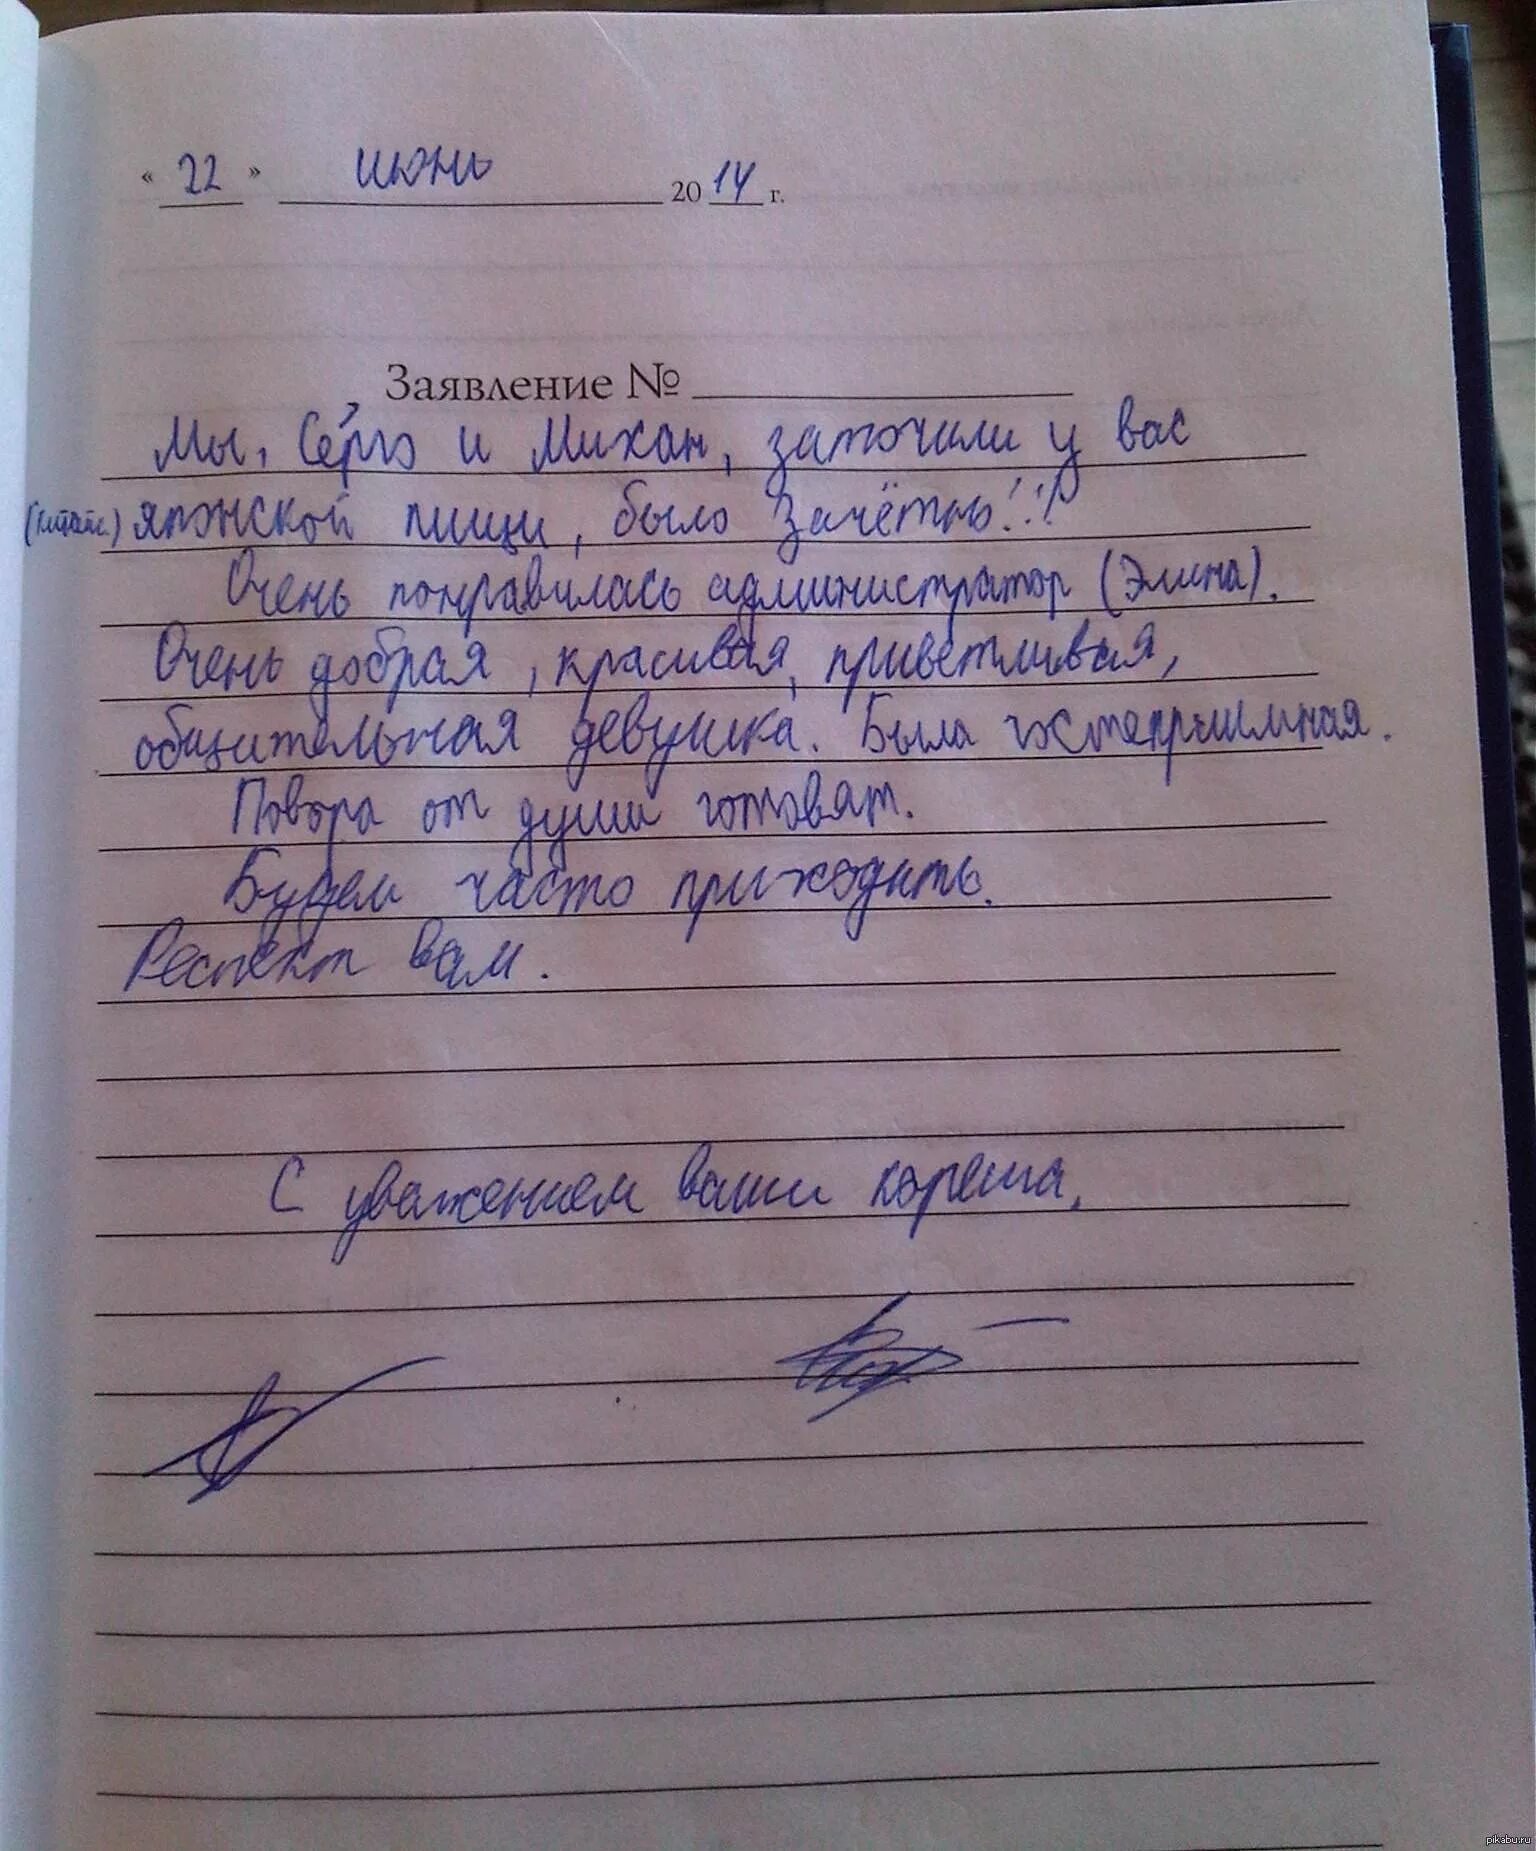 « 22 » июнь 2014 г.
Заявление №
Мы, Сёрго и Михан, заточили у вас
(китайс.) японской пищи, было зачётно!!!
Очень понравилась администратор (Элина).
Очень добрая, красивая, приветливая,
общительная девушка. Была гостеприимная.
Повора от души готовят.
Будем часто приходить.
Респект вам.
С уважением ваши кореша.
pikabu.ru